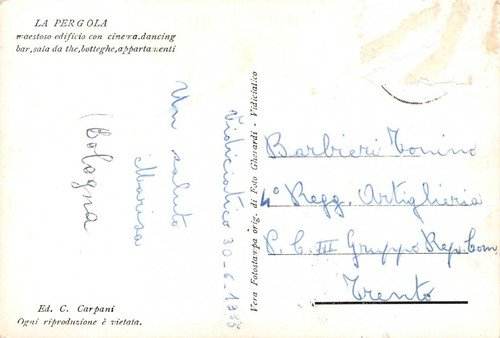 LA PERGOLA
maestoso edificio con cinema, dancing
bar, sala da the, botteghe, appartamenti
Vidiciatico 30-6-1955
Un saluto
Marisa
(Bologna
Ed. C. Carpani
Ogni riproduzione è vietata.
Vera Fotostampa orig. di Foto Gherardi - Vidiciatico
Barbieri Tonino
4° Regg. Artiglieria
P. C. III Gruppo Rep. Com
Trento